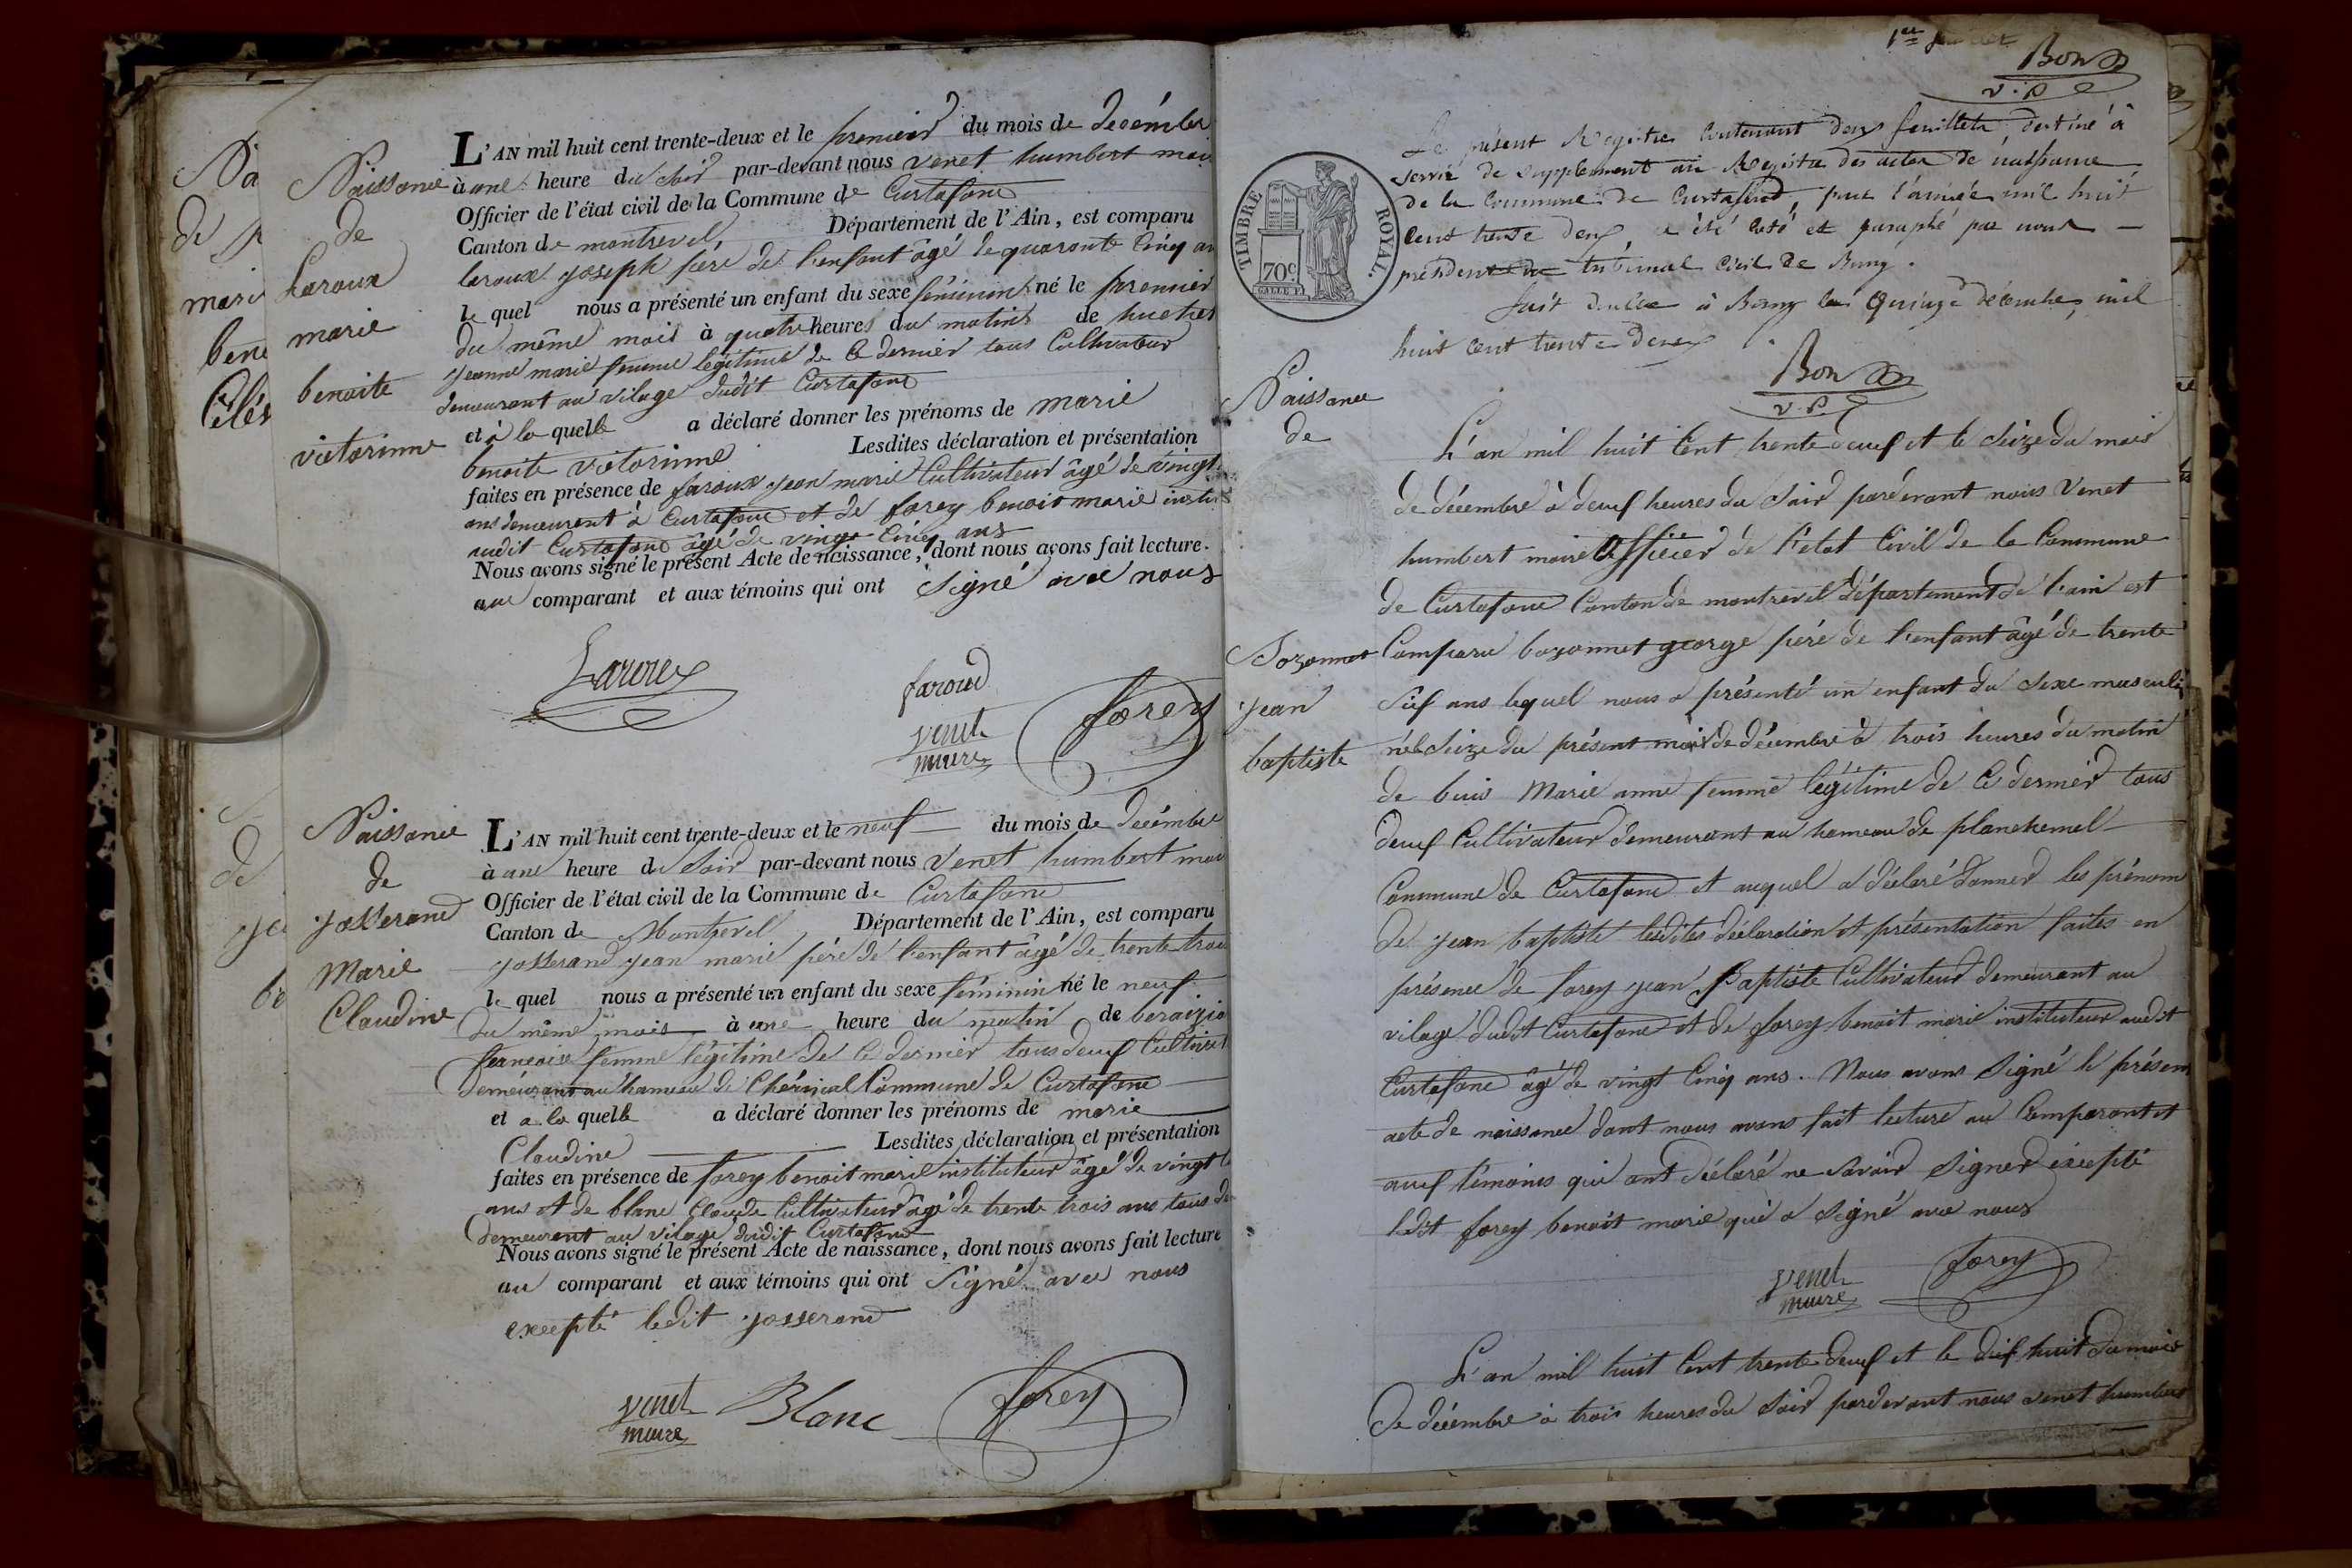 Naissance
de
Laroux
marie
benoite
victorinne
L'AN mil huit cent trente-deux et le premier du mois de decémbre
à une heure du soir par-devant nous venet humbert mai
Officier de l'état civil de la Commune de Curtafond
Canton de montrevel Département de l'Ain, est comparu
laroux joseph pére de l'enfant âgé de quarante Cinq an
le quel nous a présenté un enfant du sexe féminin né le premier
du même mois à quatre heures du matin de
jeanne marie femme légitime de ce dernier tous Cultivateur
demeurant au vilage dudit Curtafond
et à la quelle a déclaré donner les prénoms de marie
benoite victorinne Lesdites déclaration et présentation
faites en présence de faroux jean marie Cultivateur âgé de vingt
ans demeurant à Curtafond et de forey benoit marie instit
audit Curtafond âgé de vingt Cinq ans
Nous avons signé le présent Acte de naissance, dont nous avons fait lecture.
au comparant et aux témoins qui ont Signé avec nous
Laroux
faroud
venet
maire
forey
Naissance
de
josserand
Marie
Claudine
L'AN mil huit cent trente-deux et le neuf du mois de decémbre
à une heure du Soir par-devant nous Venet humbert mai
Officier de l'état civil de la Commune de Curtafond
Canton de Montrevel Département de l'Ain, est comparu
josserand jean marie pére de l'enfant âgé de trente trois
le quel nous a présenté un enfant du sexe féminin né le neuf
du même mois à une heure du matin de
femme légitime de ce dernier tous deux Cultivat
demeurant au hameau de Commune de Curtafond
et a la quelle a déclaré donner les prénoms de marie
Claudine Lesdites déclaration et présentation
faites en présence de forey benoit marie instituteur âgé de vingt
ans et de blanc Claude Cultivateur âgé de trente trois ans tous de
demeurant au vilage dudit Curtafond
Nous avons signé le présent Acte de naissance, dont nous avons fait lecture
au comparant et aux témoins qui ont Signé avec nous
excepté ledit josserand
venet
maire
Blanc
forey
1er feuillet
Bon
v. p.
Le présent Registre contenant deux feuillets, destiné à
servir de supplement au Registre des actes de naissance
de la Commune de Curtafond, pour l'année mil huit
cent trente deux, a été coté et paraphé par nous
président du tribunal civil de Bourg.
fait double à Bourg le quinze décembre, mil
huit cent trente deux
Bon
v. p.
TIMBRE ROYAL.
70c
Naissance
de
Bozonnet
jean
baptiste
L'an mil huit Cent trente deux et le Seize du mois
de décembre à deux heures du Soir pardevant nous Venet
humbert maire Officier de l'état Civil de la Commune
de Curtafond Canton de montrevel département de l'ain est
Comparu bozonnet george pére de l'enfant âgé de trente
Six ans lequel nous a présenté un enfant du Sexe masculin
né le Seize du présent mois de décembre à trois heures du matin
de buis Marie anne femme légitime de Ce dernier tous
deux Cultivateur demeurant au hameau de planchemel
Commune de Curtafond et auquel a déclaré donner les prénom
de jean baptiste lesdites déclaration et présentation faites en
présence de forey jean Baptiste Cultivateur demeurant au
vilage dudit Curtafond et de forey benoit marie instituteur audit
Curtafond âgé de vingt Cinq ans. Nous avons Signé le présent
acte de naissance dont nous avons fait lecture au Comparant et
aux témoins qui ont déclaré ne Savoir Signer excepté
ledit forey benoit marie qui a Signé avec nous
venet
maire
forey
L'an mil huit Cent trente deux et le dix huit du mois
de décembre à trois heures du Soir pardevant nous venet humbert